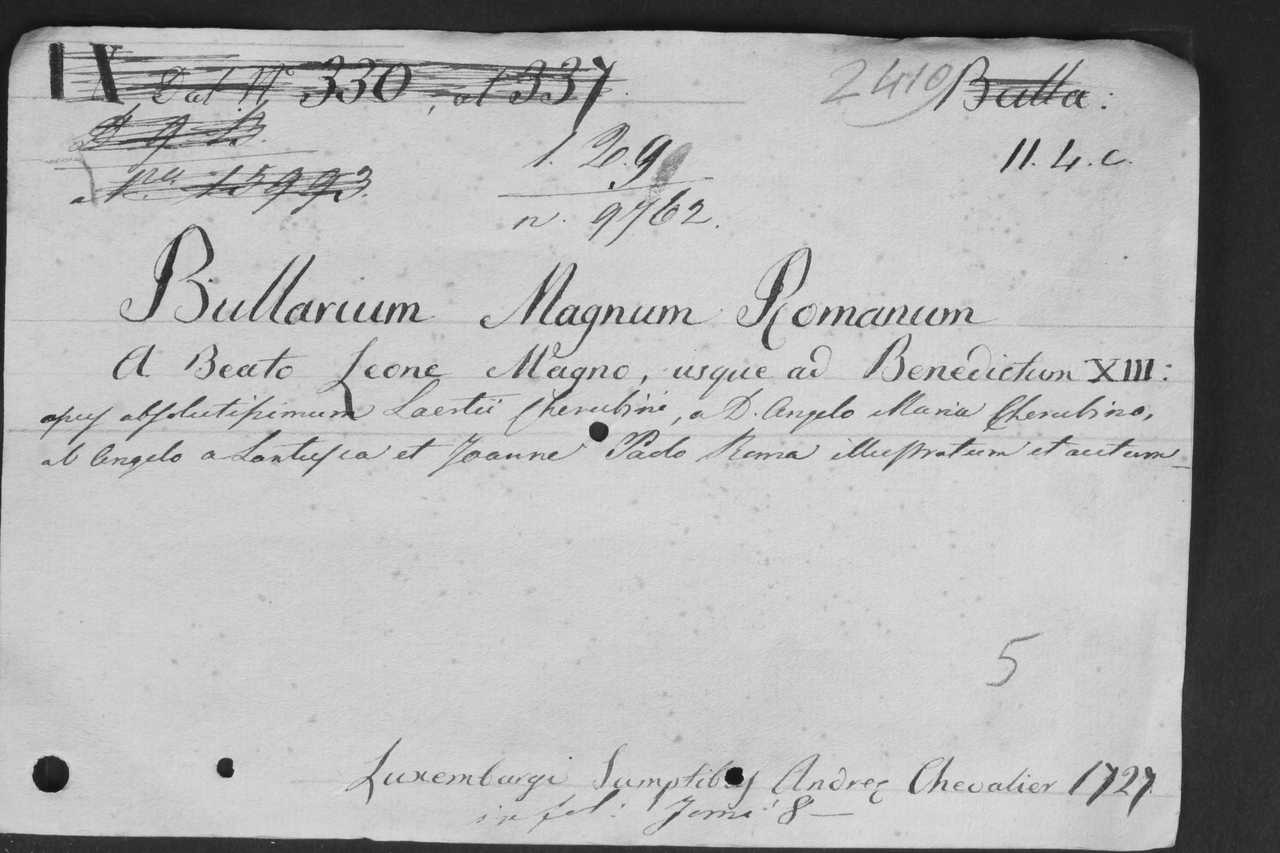 IX Dal N° 330, al 337.
2419 Bulla:
1. 20. 9
11. 4. c.
n.ro 15993.
n. 9762.
Bullarium Magnum Romanum
A Beato Leone Magno, usque ad Benedictum XIII:
opus absolutissimum Laertii Cherubini, a D. Angelo Maria Cherubino,
ab Angelo a Lantusca et Joanne Paolo Roma illustratum et auctum
5
Luxemburgi Sumptibus Andreę Chevalier 1727.
in fol: Tomi 8